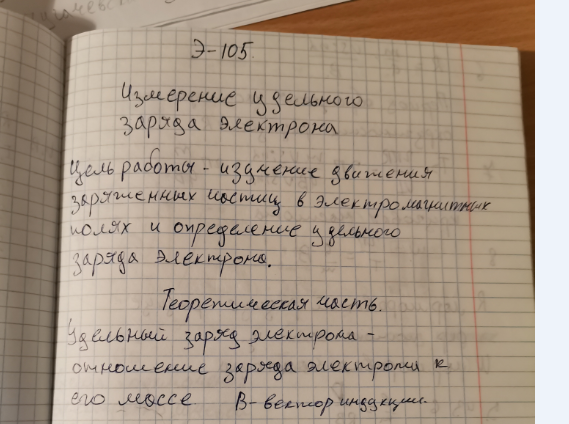 Э-105.
Измерение удельного
заряда электрона
Цель работы - изучение движения
заряженных частиц в электромагнитных
полях и определение удельного
заряда электрона.
Теоретическая часть.
Удельный заряд электрона -
отношение заряда электрона к
его массе B-вектор индукции.